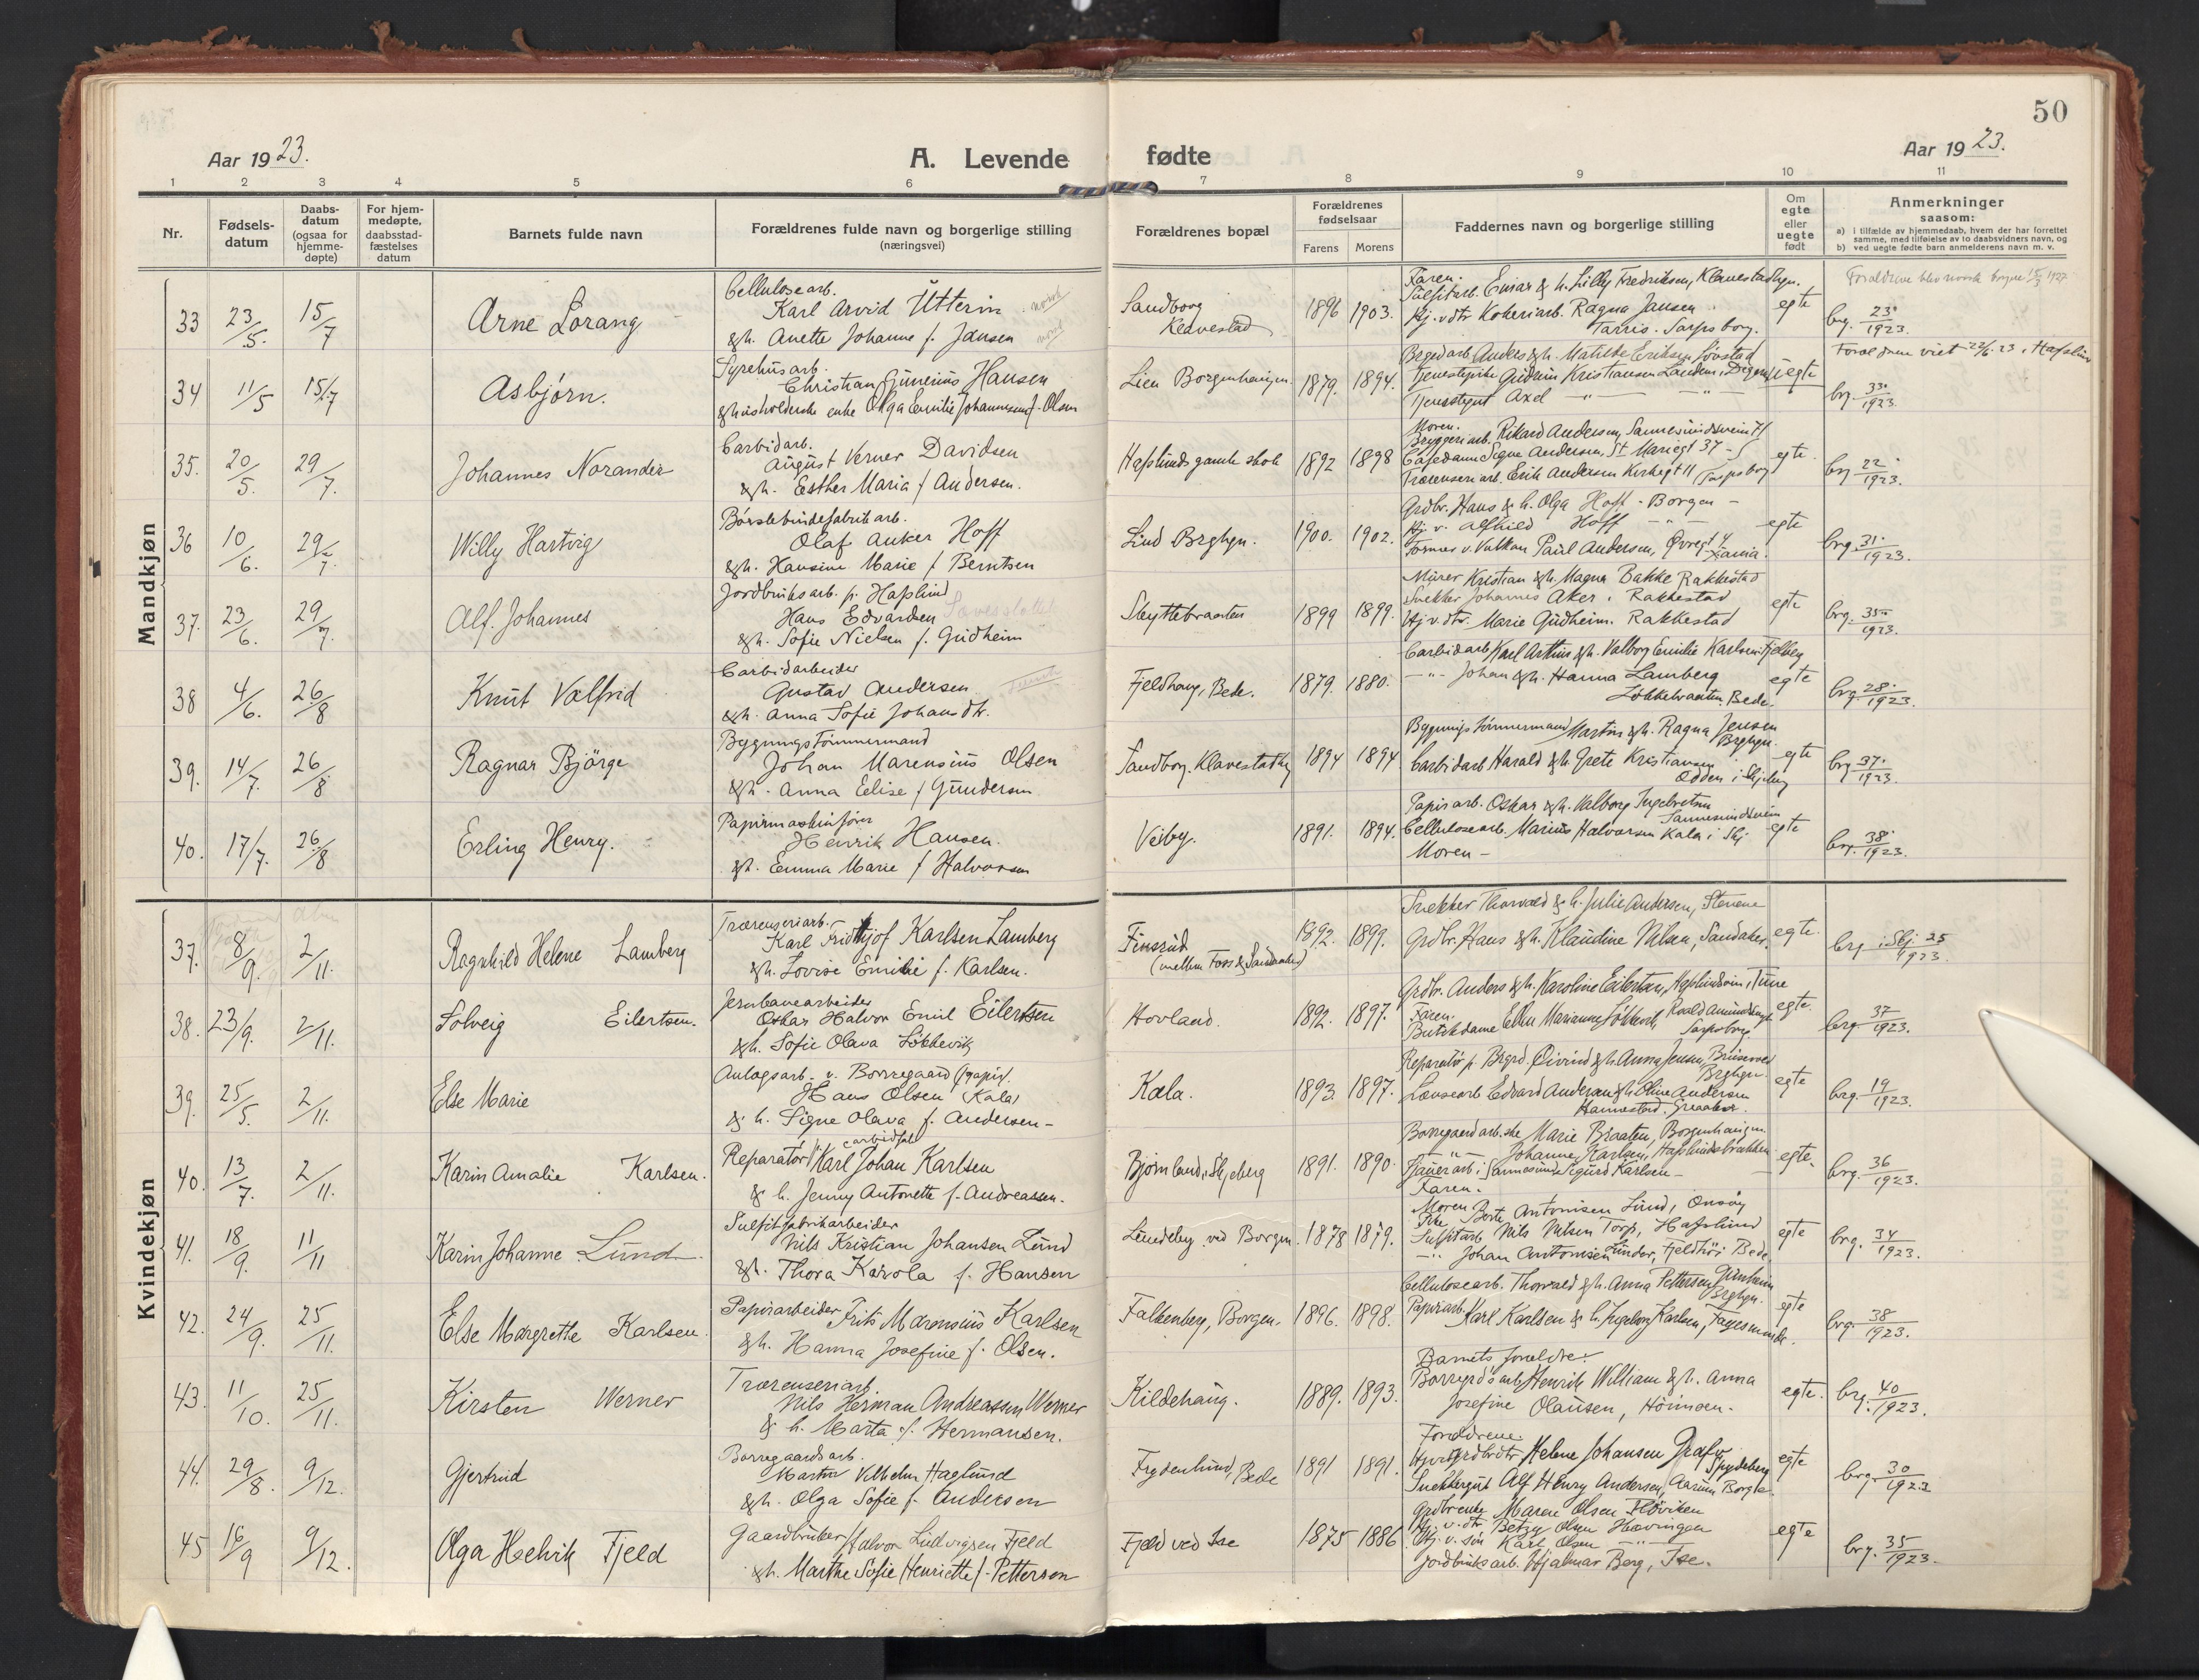 50
Aar 1923.
A. Levende fødte
Aar 1923.
1 2 3 4 5 6 7 8 9 10 11
Nr.
Fødsels-
datum
Daabs-
datum
(ogsaa for
hjemme-
døpte)
For hjem-
medøpte,
daabsstad-
fæstelses
datum
Barnets fulde navn
Forældrenes fulde navn og borgerlige stilling
(næringsvei)
Forældrenes bopæl
Forældrenes
fødselsaar
Farens Morens
Faddernes navn og borgerlige stilling
Om
egte
eller
uegte
født
Anmerkninger
saasom:
a) i tilfælde av hjemmedaab, hvem der har forrettet
samme, med tilføielse av to daabsvidners navn, og
b) ved uegte fødte barn anmelderens navn m. v.
Mandkjøn
33 23/5. 15/7 Arne Lorang
Cellulosearb.
Karl Arvid Utterin norsk
& h. Anette Johanne f. Jansen
Sandborg
1896 1903.
Faren.
Sulfitarb. Einar & h. Lilly Fredriksen, Klavestadhgn.
Hj. v. dtr Kokeriarb. Ragna Jansen
Tarris. Sarpsborg.
egte
Forældrene blev norsk borgere 15/3 1927
brg. 23/1923.
34 11/5 15/7 Asbjørn.
Syrehusarb.
Christian Gunerius Hansen
& husholderske enke Olga Emilie Johannesen f. Olsen
Lien Borgenhaugen.
1879. 1894.
Anders & h. Matilde Eriksen Lövstad
Tjenestepike Gudrun Kristiansen
Tjenestegut Axel —"— —"—
uegte
Forældrene viet 22/6 23 i Hafslund
brg. 33/1923.
35. 20/5. 29/7. Johannes Norander
Carbidarb.
August Verner Davidsen
& h. Esther Maria f Andersen.
Hafslunds gamle skole
1892 1898
Moren.
Bryggeriarb. Rikard Andersen, Sannesundsvein 71
Cafedame Signe Andersen, St Mariegt 37
Træreneriarb. Erik Andersen Kirkegt 11 Sarpsborg
egte.
brg 22/1923.
36 10/6. 29/7. Willy Hartvig
Børstebindefabrikarb.
Olaf Anker Hoff
& h. Hansine Marie f Berntsen
Lund Brghgn.
1900. 1902.
Grdbr. Hans & h. Olga Hoff - Borgen -
Hj. v. Alfhild Hoff —"—
Former v. Vulkan Paul Andersen, Øvregt 4
egte
brg. 31/1923.
37. 23/6. 29/7. Alf. Johannes
Jordbruksarb. p. Hafslund
Hans Edvardsen
& h. Sofie Nielsen f. Gudheim
Skyttebraaten
1899 1899.
Murer Kristian & h. Magna Bakke Rakkestad
Snekker Johannes Aker i Rakkestad
Hj. v. dtr. Marie Gudheim. Rakkestad
egte
brg. 35/1923.
38 4/6. 26/8 Knut Valfrid
Carbidarbeider
Gustav Andersen
& h. Anna Sofie Johansdtr.
Fjeldhaug, Bede.
1879. 1880.
Carbidarb Karl Arthur & h. Valborg Emilie Karlsen Fjelberg
—"— Johan & h. Hanna Lamberg
Løkkebraaten, Bede.
egte
brg. 28/1923.
39. 14/7. 26/8 Ragnar Bjørge
Bygningstømmermand
Johan Marensius Olsen
& h. Anna Elise f Gundersen
Sandborg. Klavestadhg
1894 1894
Bygningstømmermand Martin & h. Ragna Jensen
Brghgn.
Carbidarb Harald & h. Grete Kristiansen
Odden i Skjeberg
egte
brg. 37/1923.
40. 17/7. 26/8 Erling Henry.
Papirmaskinfører
Henrik Hansen.
& h. Emma Marie f Halvorsen
Veiby.
1891. 1894.
Papirarb. Oskar & h. Valborg Ingebretsen
Sannesundsvein
Cellulosearb. Marius Halvorsen Kala i Skj.
Moren -
egte
brg. 38/1923.
Kvindekjøn
37. 8/9. 2/11. Ragnhild Helene Lamberg
Træreneriarb.
Karl Fridthjof Karlsen Lamberg
& h. Lovise Emilie f. Karlsen.
Finsrud
(mellem Foss & Sandaker)
1892. 1899.
Snekker Thorvald & h. Julie Andersen, Stenene
Grdbr. Hans & h. Klaudine Nilsen, Sandaker.
egte.
brg i Skj. 25/1923.
38. 23/9. 2/11. Solveig Eilertsen.
Jernbanearbeider
Oskar Halvor Emil Eilertsen
& h. Sofie Olava Løkkevik
Hovland.
1892. 1897.
Grdbr. Anders & h. Karoline Eilertsen, Hafslundsveien i Tune
Faren.
Butikdame Ellen Marianne Løkkevik, Roald Amundsensgt
Sarpsborg.
egte.
brg. 37/1923.
39. 25/5. 2/11. Else Marie
Anlagsarb. v. Borregaard (papir.
Hans Olsen (Kala)
& h. Signe Olava f. Andersen -
Kala.
1893. 1897.
Reparatør p. Brgrd. Øivind & h. Anna Jensen,
Brghgn.
Lænsearb Edvard Andersen & h. Oline Andersen
Hannestad. Greaaker.
egte
brg. 19/1923.
40. 13/7. 2/11. Karin Amalie Karlsen.
Reparatør carbidfab. Karl Johan Karlsen
& h. Jenny Antonette f. Andreassen.
Bjørnland, i Skjeberg
1891. 1890.
Borregaardarb.ske Marie Braaten, Borgenhaugen
—"— Johanne Karlsen, Hafslundsbrakken
Sjauerarb. i Sannesund Sigurd Karlsen -
Faren.
egte.
brg. 36/1923.
41. 18/9. 11/11 Karin Johanne Lund.
Sulfitfabrikarbeider
Nils Kristian Johansen Lund
& h. Thora Karola f. Hansen
Lundeby ved Borgen.
1878 1879.
Moren
Pike Berte Antonisen Lund, Onsøy
Sulfitarb Nils Nilsen Torp, Hafslund
—"— Johan Antonisen Lunder, Fjeldhøi Bede.
egte
brg. 34/1923.
42. 24/9. 25/11. Else Margrethe Karlsen.
Papirarbeider Frits Marensius Karlsen
& h. Hanna Josefine f. Olsen.
Falkenberg, Borgen.
1896. 1898.
Cellulosearb. Thorvald & h. Anna Pettersen Gunheim
Brghgn.
Papirarb. Karl Karlsen & h. Ingeborg Karlsen, Fagermunde.
egte
brg. 38/1923.
43. 11/10. 25/11. Kirsten Werner
Træreneriarb.
Nils Herman Andreassen Werner
& h. Marta f. Hermansen.
Kildehaug.
1889. 1893.
Barnets forældre.
Borregrd's arb Henrik William & h. Anna
Josefine Olausen, Hörmoen.
egte.
brg. 40/1923.
44. 29/8. 9/12. Gjertrud
Borregaardsarb.
Martin Vilhelm Haglund
& h. Olga Sofie f. Andersen
Frydenlund, Bede
1891 1891.
Forældrene.
Helene Johansen Graf
Spydeberg
Snekkergut Alf Henry Andersen, Aarum Borge.
egte
brg. 30/1923
45 16/9 9/12. Olga Helvik Fjeld
Gaardbruker Halvor Ludvigsen Fjeld
& h. Marthe Sofie (Henriette) f. Petterson
Fjeld ved Ise
1875 1886
Grdbrenke Maren Olsen Fløviken
Hj. v. dtr Betzy Olsen Hævingen
Hj. v. søn Karl Olsen —"—
Jordbruksarb. Hjalmar Berg, Ise.
egte
brg. 35/1923.